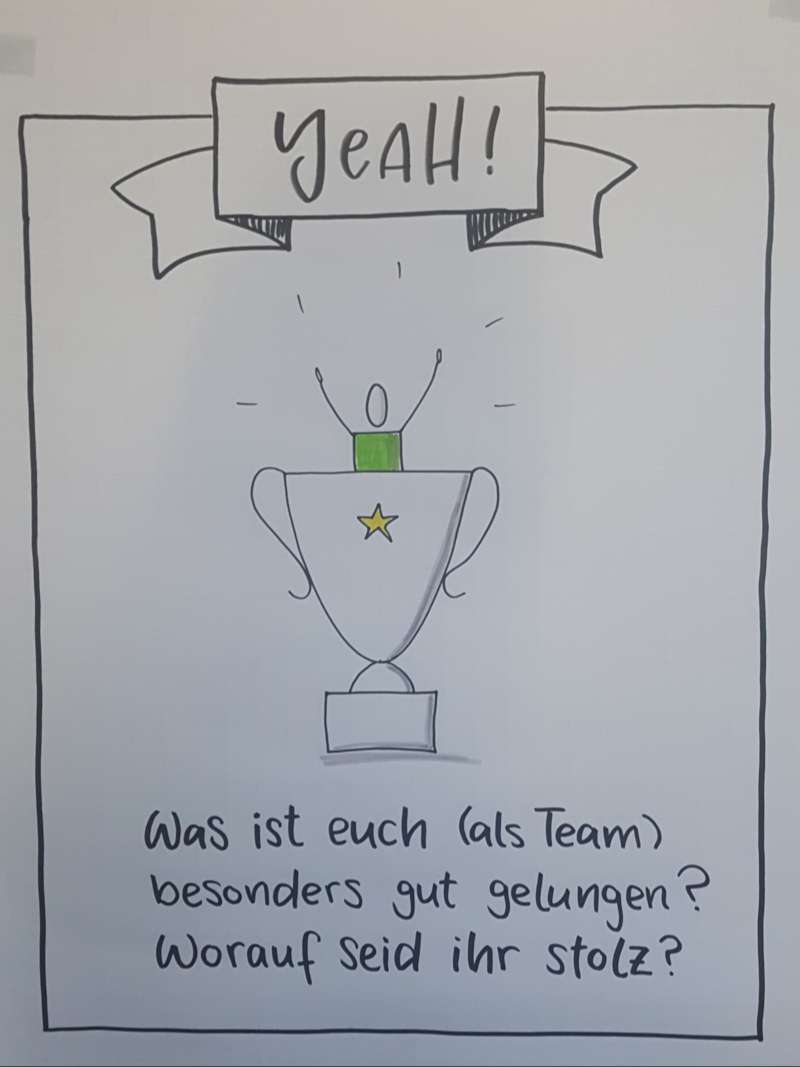 YeAH!
Was ist euch (als Team)
besonders gut gelungen?
Worauf seid ihr stolz?